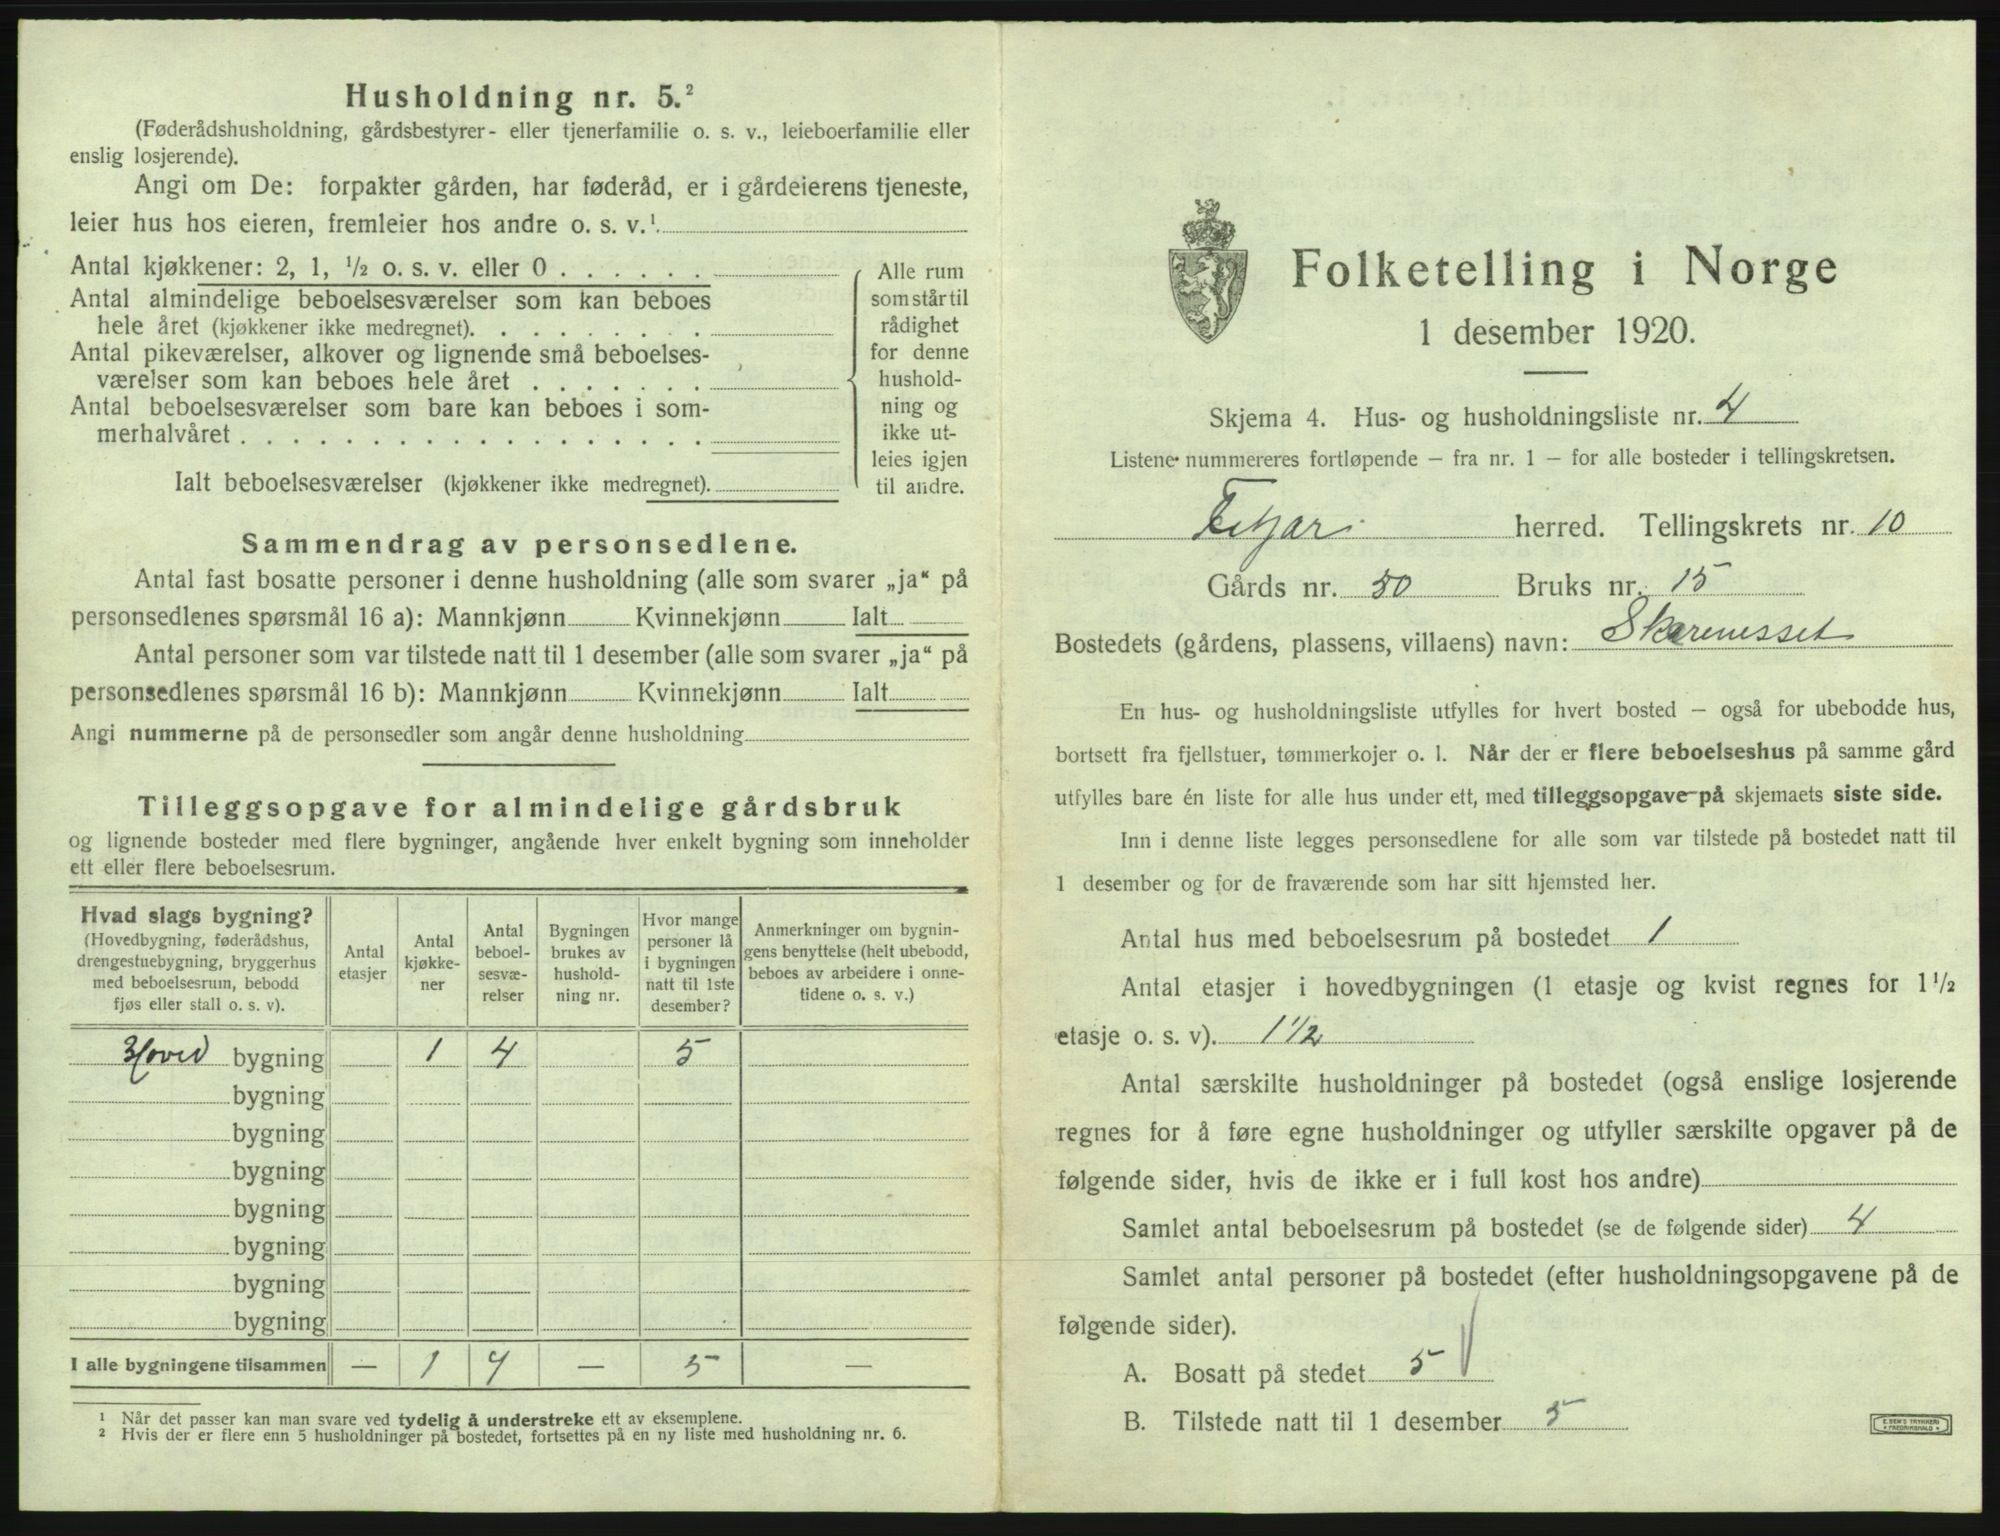 Husholdning nr. 5.²
(Føderådshusholdning, gårdsbestyrer- eller tjenerfamilie o. s. v., leieboerfamilie eller
enslig losjerende).
Angi om De: forpakter gården, har føderåd, er i gårdeierens tjeneste,
leier hus hos eieren, fremleier hos andre o. s. v.¹
Antal kjøkkener: 2, 1, ½ o. s. v. eller 0
Antal almindelige beboelsesværelser som kan beboes
hele året (kjøkkener ikke medregnet).
Antal pikeværelser, alkover og lignende små beboelses-
værelser som kan beboes hele året
Antal beboelsesværelser som bare kan beboes i som-
merhalvåret
Ialt beboelsesværelser (kjøkkener ikke medregnet).
Alle rum
som står til
rådighet
for denne
hushold-
ning og
ikke ut-
leies igjen
til andre.
Sammendrag av personsedlene.
Antal fast bosatte personer i denne husholdning (alle som svarer „ja“ på
personsedlenes spørsmål 16 a): Mannkjønn Kvinnekjønn Ialt
Antal personer som var tilstede natt til 1 desember (alle som svarer „ja“ på
personsedlenes spørsmål 16 b): Mannkjønn Kvinnekjønn Ialt
Angi nummerne på de personsedler som angår denne husholdning
Tilleggsopgave for almindelige gårdsbruk
og lignende bosteder med flere bygninger, angående hver enkelt bygning som inneholder
ett eller flere beboelsesrum.
Hvad slags bygning?
(Hovedbygning, føderådshus,
drengestuebygning, bryggerhus
med beboelsesrum, bebodd
fjøs eller stall o. s. v).
Antal
etasjer
Antal
kjøkke-
ner
Antal
beboel-
sesvæ-
relser
Bygningen
brukes av
hushold-
ning nr.
Hvor mange
personer lå
i bygningen
natt til 1ste
desember?
Anmerkninger om bygnin-
gens benyttelse (helt ubebodd,
beboes av arbeidere i onne-
tidene o. s. v.)
Hoved bygning 1 4 5
bygning
bygning
bygning
bygning
bygning
bygning
bygning
I alle bygningene tilsammen — 1 4 — 5 —
¹ Når det passer kan man svare ved tydelig å understreke ett av eksemplene.
² Hvis der er flere enn 5 husholdninger på bostedet, fortsettes på en ny liste med husholdning nr. 6.
Folketelling i Norge
1 desember 1920.
Skjema 4. Hus- og husholdningsliste nr. 4
Listene nummereres fortløpende — fra nr. 1 — for alle bosteder i tellingskretsen.
Fitjar herred. Tellingskrets nr. 10
Gårds nr. 50 Bruks nr. 15
Bostedets (gårdens, plassens, villaens) navn: Skarenesset
En hus- og husholdningsliste utfylles for hvert bosted — også for ubebodde hus,
bortsett fra fjellstuer, tømmerkojer o. l. Når der er flere beboelseshus på samme gård
utfylles bare én liste for alle hus under ett, med tilleggsopgave på skjemaets siste side.
Inn i denne liste legges personsedlene for alle som var tilstede på bostedet natt til
1 desember og for de fraværende som har sitt hjemsted her.
Antal hus med beboelsesrum på bostedet 1
Antal etasjer i hovedbygningen (1 etasje og kvist regnes for 1½
etasje o. s. v). 1½
Antal særskilte husholdninger på bostedet (også enslige losjerende
regnes for å føre egne husholdninger og utfyller særskilte opgaver på de
følgende sider, hvis de ikke er i full kost hos andre)
Samlet antal beboelsesrum på bostedet (se de følgende sider) 4
Samlet antal personer på bostedet (efter husholdningsopgavene på de
følgende sider).
A. Bosatt på stedet 5
B. Tilstede natt til 1 desember 5